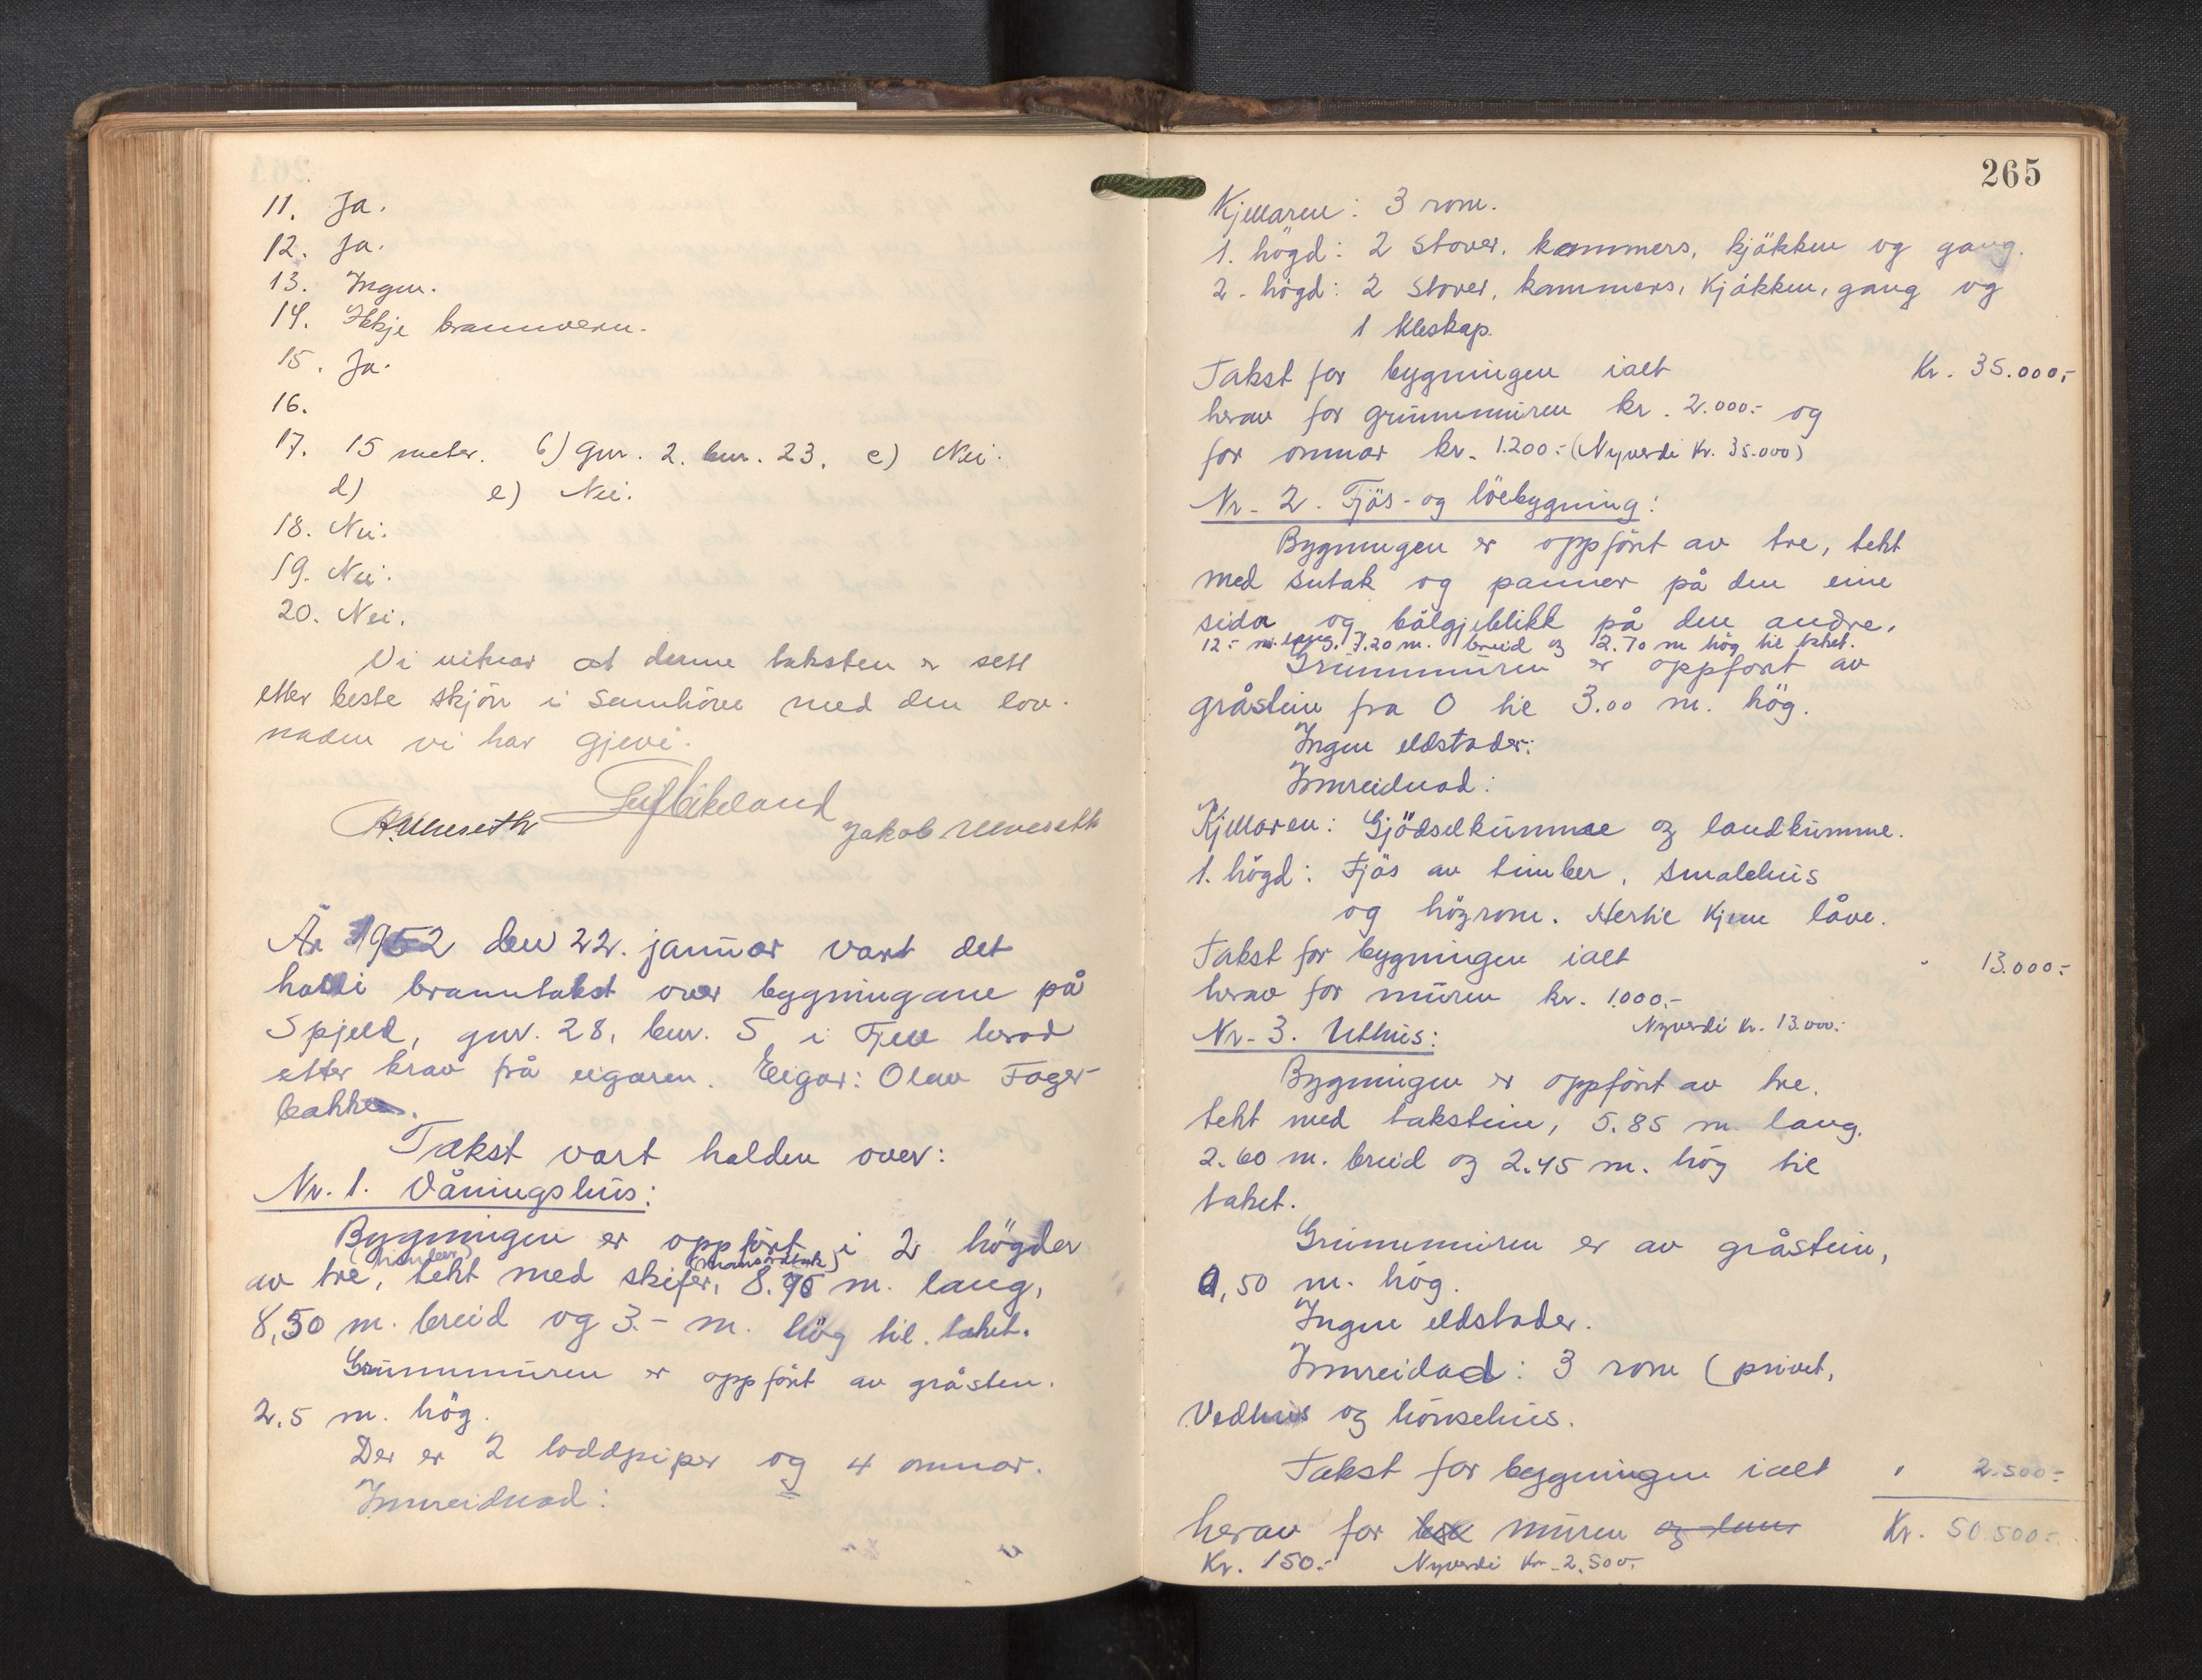 11. Ja.
12. Ja.
13. Ingen.
14. Ikkje brannvern.
15. Ja.
16.
17. 15 meter. b) gnr. 2. bnr. 23. c) Nei.
d) e) Nei.
18. Nei.
19. Nei.
20. Nei.
Vi vitnar at denne taksten er sett
etter beste skjön i samhöve med den lov-
naden vi har gjeve.
Jakob Ulveseth
År 1952 den 22. januar vart det
halde branntakst over bygningane på
Spjeld, gnr. 28, bnr. 5 i Fjell herad
etter krav frå eigaren. Eigar: Olav Fager-
bakke.
Takst vart halden over:
Nr. 1. Våningshus:
Bygningen er oppfört i 2 högder
(timber) (mansardtak)
av tre, tekt med skifer, 8.95 m. lang,
8,50 m. breid og 3.- m. hög til taket.
Grunnmüren er oppfört av gråsten.
2,5 m. hög.
Der er 2 loddpiper og 4 omnar.
Innreidnad:
265
Kjellaren: 3 rom.
1. högd: 2 stover, kammers, kjökken og gang.
2. högd: 2 stover, kammers, kjökken, gang og
1 kleskap.
Takst for bygningen ialt Kr. 35.000,-
herav for grünnmüren kr. 2.000.- og
for omnar kr. 1.200.- (Nyverdi kr. 35.000)
Nr. 2. Fjös- og löebygning:
Bygningen er oppfört av tre, tekt
med sutak og panner på den eine
sida og bölgjeblikk på den andre.
12.- m. lang, 7.20 m. breid og 2.70 m hög til taket.
Grünnmüren er oppfört av
gråstein fra 0 til 3.00 m. hög.
Ingen eldstader.
Innreidnad:
Kjellaren: Gjödselkumme og landkumme.
1. högd: Fjös av timber, smalehus
og högrom. Hertil kjem låve.
Takst for bygningen ialt " 13.000.-
herav for müren kr. 1.000.-
Nyverdi kr. 13.000.-
Nr. 3. Uthus:
Bygningen er oppfört av tre,
tekt med takstein, 5.85 m. lang,
2.60 m. breid og 2.45 m. hög til
taket.
Grünnmüren er av gråstein,
0,50 m. hög.
Ingen eldstader.
Innreidad: 3 rom (privet,
Vedhus og hönsehus.
Takst for bygningen ialt " 2.500.-
herav for müren Kr. 50.500.-
Kr. 150.- Nyverdi kr. 2.500.-